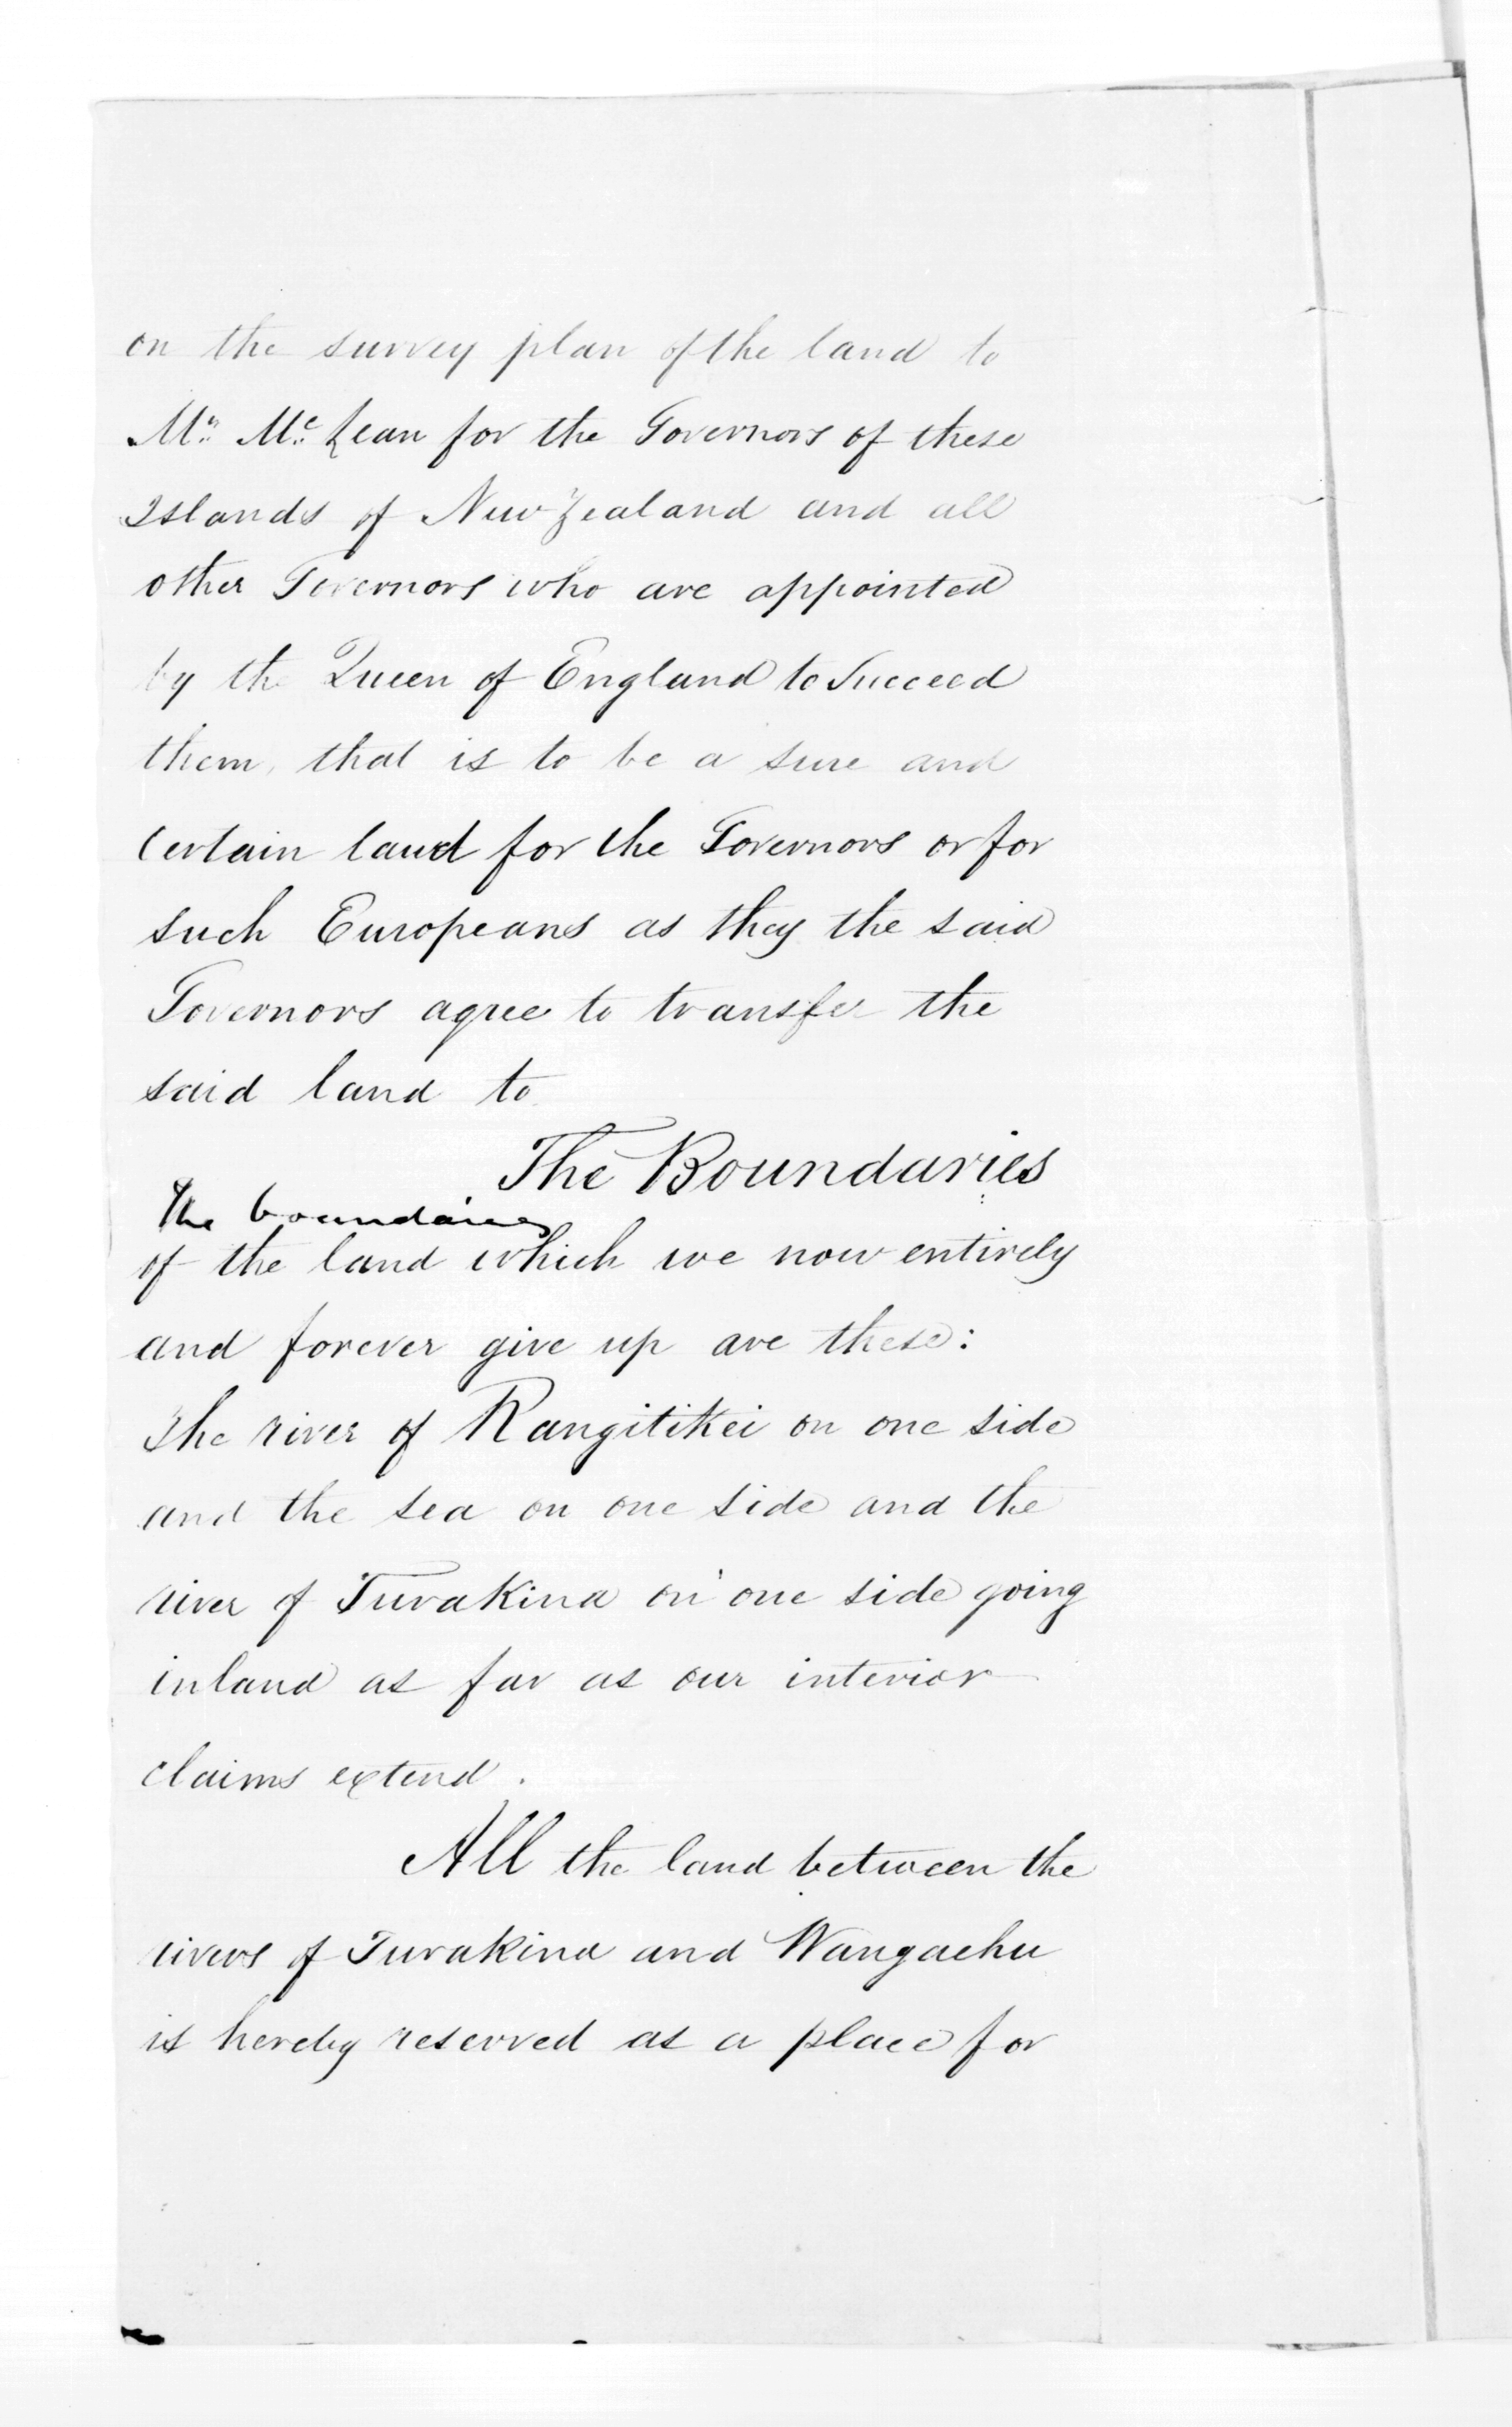 on the survey plan of the land to
Mr. Mc. Lean for the Governors of these
Islands of New Zealand and all
other Governors who are appointed
by the Queen of England to Succeed
them, that is to be a sure and
certain land for the Governors or for
such Europeans as they the said
Governors agree to transfer the
said land to
The Boundaries
The boundaries
of the land which we now entirely
and forever give up are these:
The river of Rangitikei on one side
and the sea on one side and the
river of Turakina on one side going
inland as far as our interior
claims extend.
All the land between the
rivers of Turakina and Wangaehu
is hereby reserved as a place for